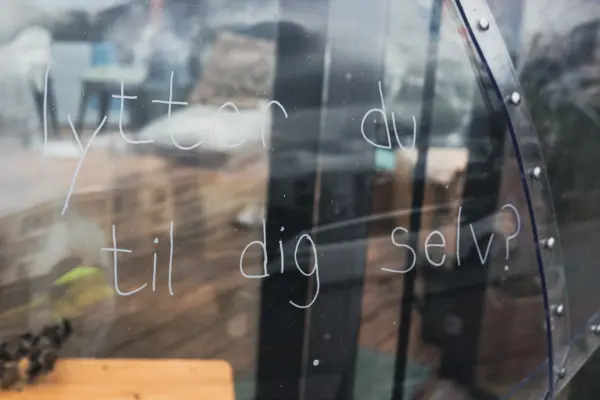 lytter du
til dig selv?